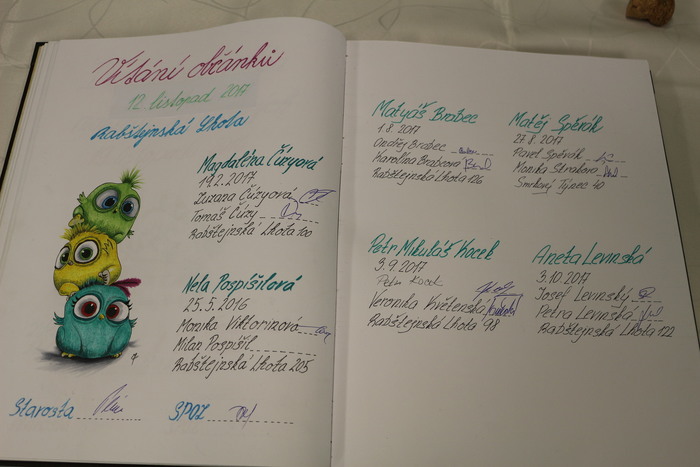 Vítání občánků
12. listopad 2017
Rabštejnská Lhota
Magdaléna Čúzyová
19.2.2017
Zuzana Čúzyová
Tomáš Čúzy
Rabštejnská Lhota 100
Nela Pospíšilová
25.5.2016
Monika Viktorinová
Milan Pospíšil
Rabštejnská Lhota 205
Starosta
SPOZ
Matyáš Brabec
1.8.2017
Ondřej Brabec
Karolína Brabcová
Rabštejnská Lhota 126
Matěj Spěvák
27.8.2017
Pavel Spěvák
Monika Straková
Smrkový Týnec 40
Petr Mikuláš Kocek
3.9.2017
Petr Kocek
Veronika Květenská
Rabštejnská Lhota 98
Aneta Levinská
3.10.2017
Josef Levinský
Petra Levinská
Rabštejnská Lhota 122